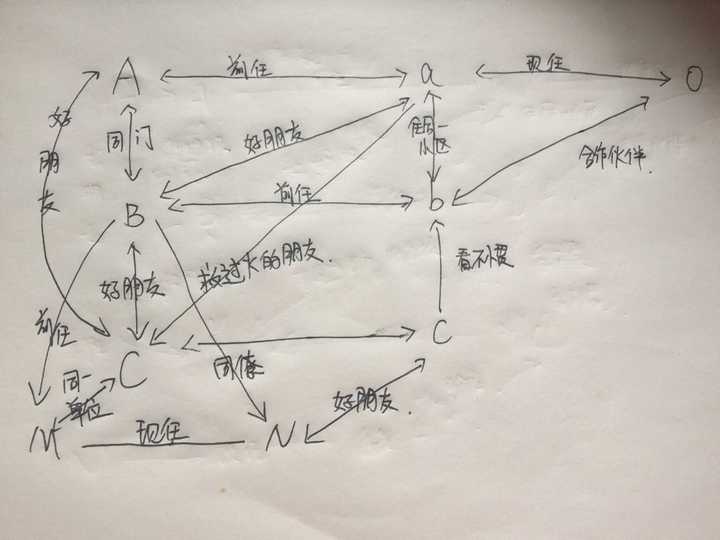 A 前任 a 现任 O
好朋友
同门
好朋友
住同一
小区
合作伙伴.
B 前任 b
好朋友
救过火的朋友.
看不惯
前任
C 同僚 C
同一
单位
好朋友.
M 现任 N